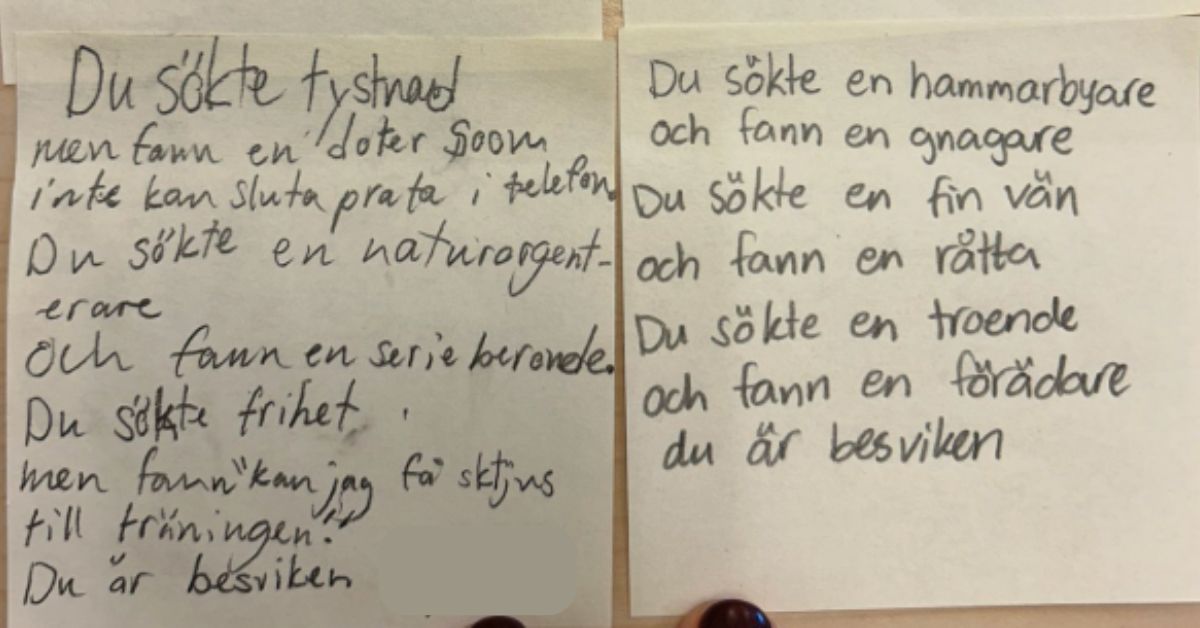 Du sökte tystnad
men fann en doter soom
inte kan sluta prata i telefon
Du sökte en naturorgent-
erare
och fann en serie beronde.
Du sökte frihet
men fann "kan jag få sktjus
till träningen."
Du är besviken
Du sökte en hammarbyare
och fann en gnagare
Du sökte en fin vän
och fann en råtta
Du sökte en troende
och fann en förädare
du är besviken